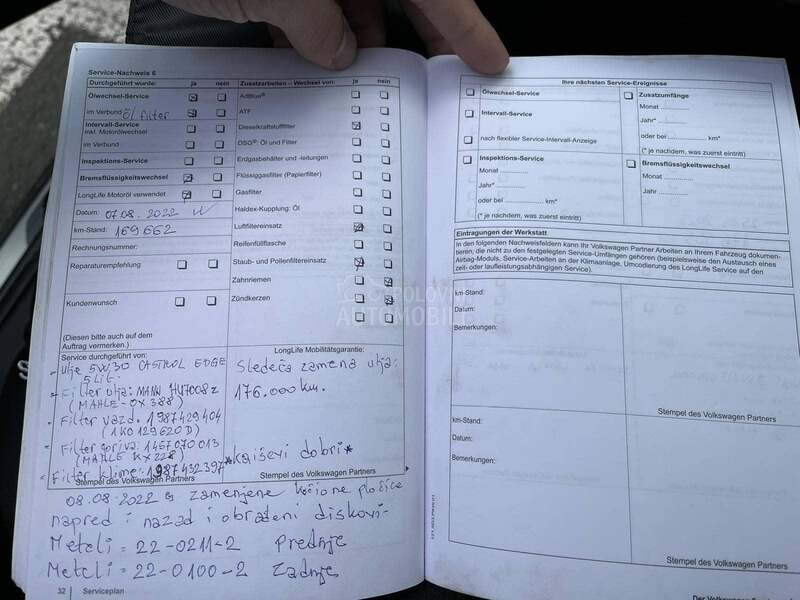 Service-Nachweis 6
Durchgeführt wurde: ja nein
Ölwechsel-Service
im Verbund Öl filter
Intervall-Service
inkl. Motorölwechsel
im Verbund
Inspektions-Service
Bremsflüssigkeitswechsel
LongLife Motoröl verwendet
Datum: 07.08.2022
km-Stand: 169 662
Rechnungsnummer:
Reparaturempfehlung
Kundenwunsch
(Diesen bitte auch auf dem
Auftrag vermerken.)
Zusatzarbeiten – Wechsel von: ja nein
AdBlue®
ATF
Dieselkraftstofffilter
DSG®: Öl und Filter
Erdgasbehälter und -leitungen
Flüssiggasfilter (Papierfilter)
Gasfilter
Haldex-Kupplung: Öl
Luftfiltereinsatz
Reifenfüllflasche
Staub- und Pollenfiltereinsatz
Zahnriemen
Zündkerzen
Service durchgeführt von:
- Ulje 5W30 CASTROL EDGE
5 Lit.
- Filter ulja: MANN HU7008z
(MAHLE-OX 388)
- Filter vazd. 1987429404
(1K0129620D)
- Filter goriva: 1457070013
(MAHLE KX228)
- Filter klime: 1987432397
Stempel des Volkswagen Partners
LongLife Mobilitätsgarantie:
Sledeća zamena ulja:
176.000km.
*Kaiševi dobri*
Stempel des Volkswagen Partners
08.08.2022 zamenjene kočione pločice
napred i nazad i obrađeni diskovi.
Metelli = 22-0211-2 Prednje
Metelli = 22-0100-2 Zadnje
32 Serviceplan
POLOVNI
AUTOMOBILI
Ihre nächsten Service-Ereignisse
Ölwechsel-Service
Intervall-Service
nach flexibler Service-Intervall-Anzeige
Inspektions-Service
Monat ............
Jahr* ............
oder bei ............ km*
(* je nachdem, was zuerst eintritt)
Zusatzumfänge
Monat ............
Jahr* ............
oder bei ............ km*
(* je nachdem, was zuerst eintritt)
Bremsflüssigkeitswechsel
Monat ............
Jahr ............
Eintragungen der Werkstatt
In den folgenden Nachweisfeldern kann Ihr Volkswagen Partner Arbeiten an Ihrem Fahrzeug dokumen-
tieren, die nicht zu den festgelegten Service-Umfängen gehören (beispielsweise den Austausch eines
Airbag-Moduls, Service-Arbeiten an der Klimaanlage, Umcodierung des LongLife Service auf den
zeit- oder laufleistungsabhängigen Service).
km-Stand:
Datum:
Bemerkungen:
Stempel des Volkswagen Partners
km-Stand:
Datum:
Bemerkungen:
Stempel des Volkswagen Partners